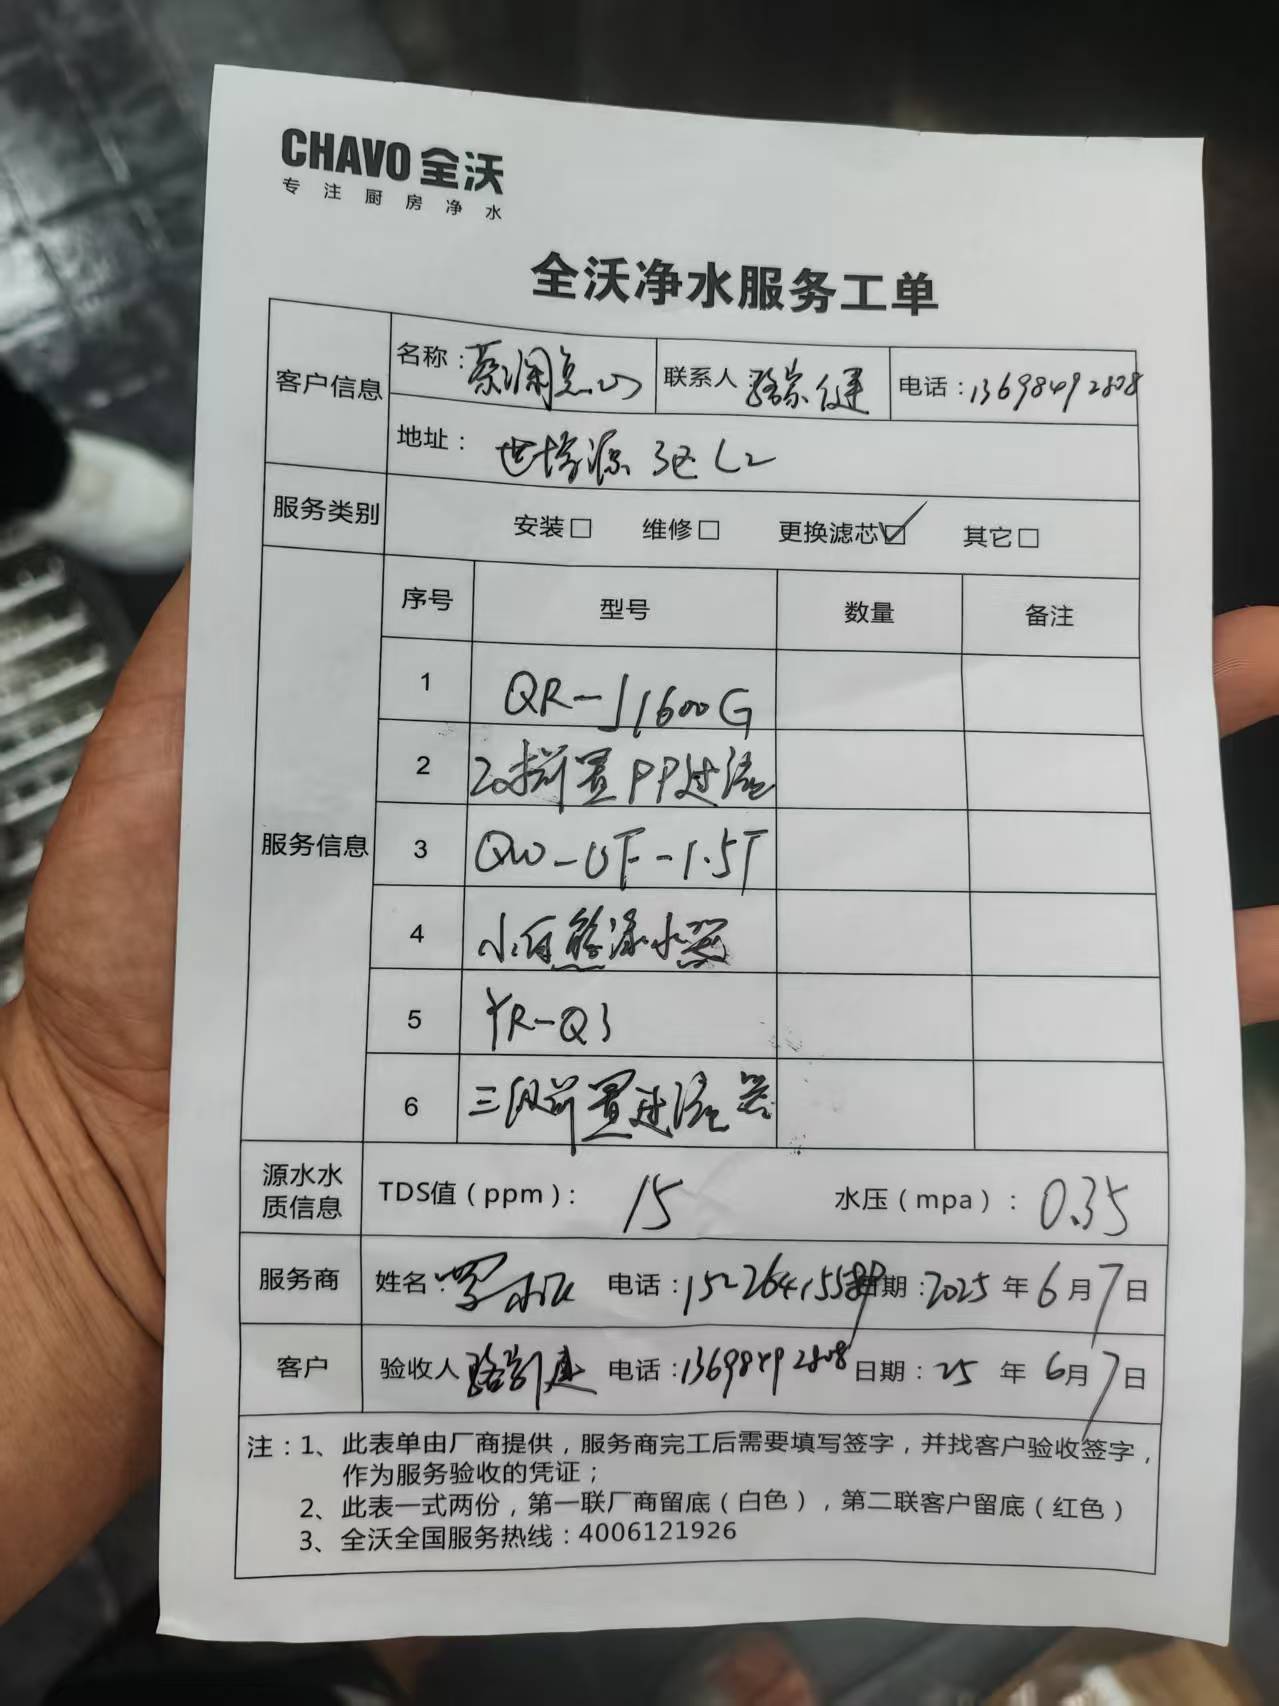 CHAVO 全沃
专注厨房净水
全沃净水服务工单
客户信息 名称：蔡澜点心 联系人 骆宗健 电话：13698492808
地址： 世博源 3区 L2
服务类别 安装□ 维修□ 更换滤芯☑ 其它□
服务信息 序号 型号 数量 备注
1 QR-J1600G
2 20寸前置PP过滤
3 QW-UF-1.5T
4 小白熊净水器
5 YR-Q3
6 三级前置过滤器
源水水质信息 TDS值（ppm）： 15 水压（mpa）：0.35
服务商 姓名： 电话： 日期：2025 年 6 月 7 日
客户 验收人 电话：13698492808 日期：25 年 6 月 7 日
注：1、此表单由厂商提供，服务商完工后需要填写签字，并找客户验收签字，
作为服务验收的凭证；
2、此表一式两份，第一联厂商留底（白色），第二联客户留底（红色）
3、全沃全国服务热线：4006121926